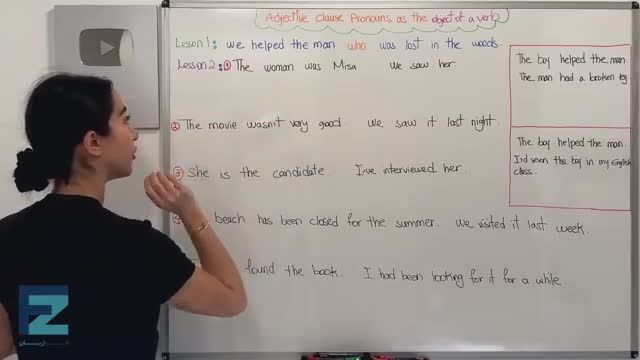 Adjective Clause Pronouns as the object of a verb
Lesson 1: We helped the man who was lost in the woods.
Lesson 2: ① The woman was Misa We saw her.
② The movie wasn't very good. We saw it last night.
③ She is the candidate. I've interviewed her.
beach has been closed for the summer. We visited it last week.
found the book. I had been looking for it for a while.
The boy helped the man.
The man had a broken leg.
The boy helped the man.
I'd seen the boy in my English
class.
FZ